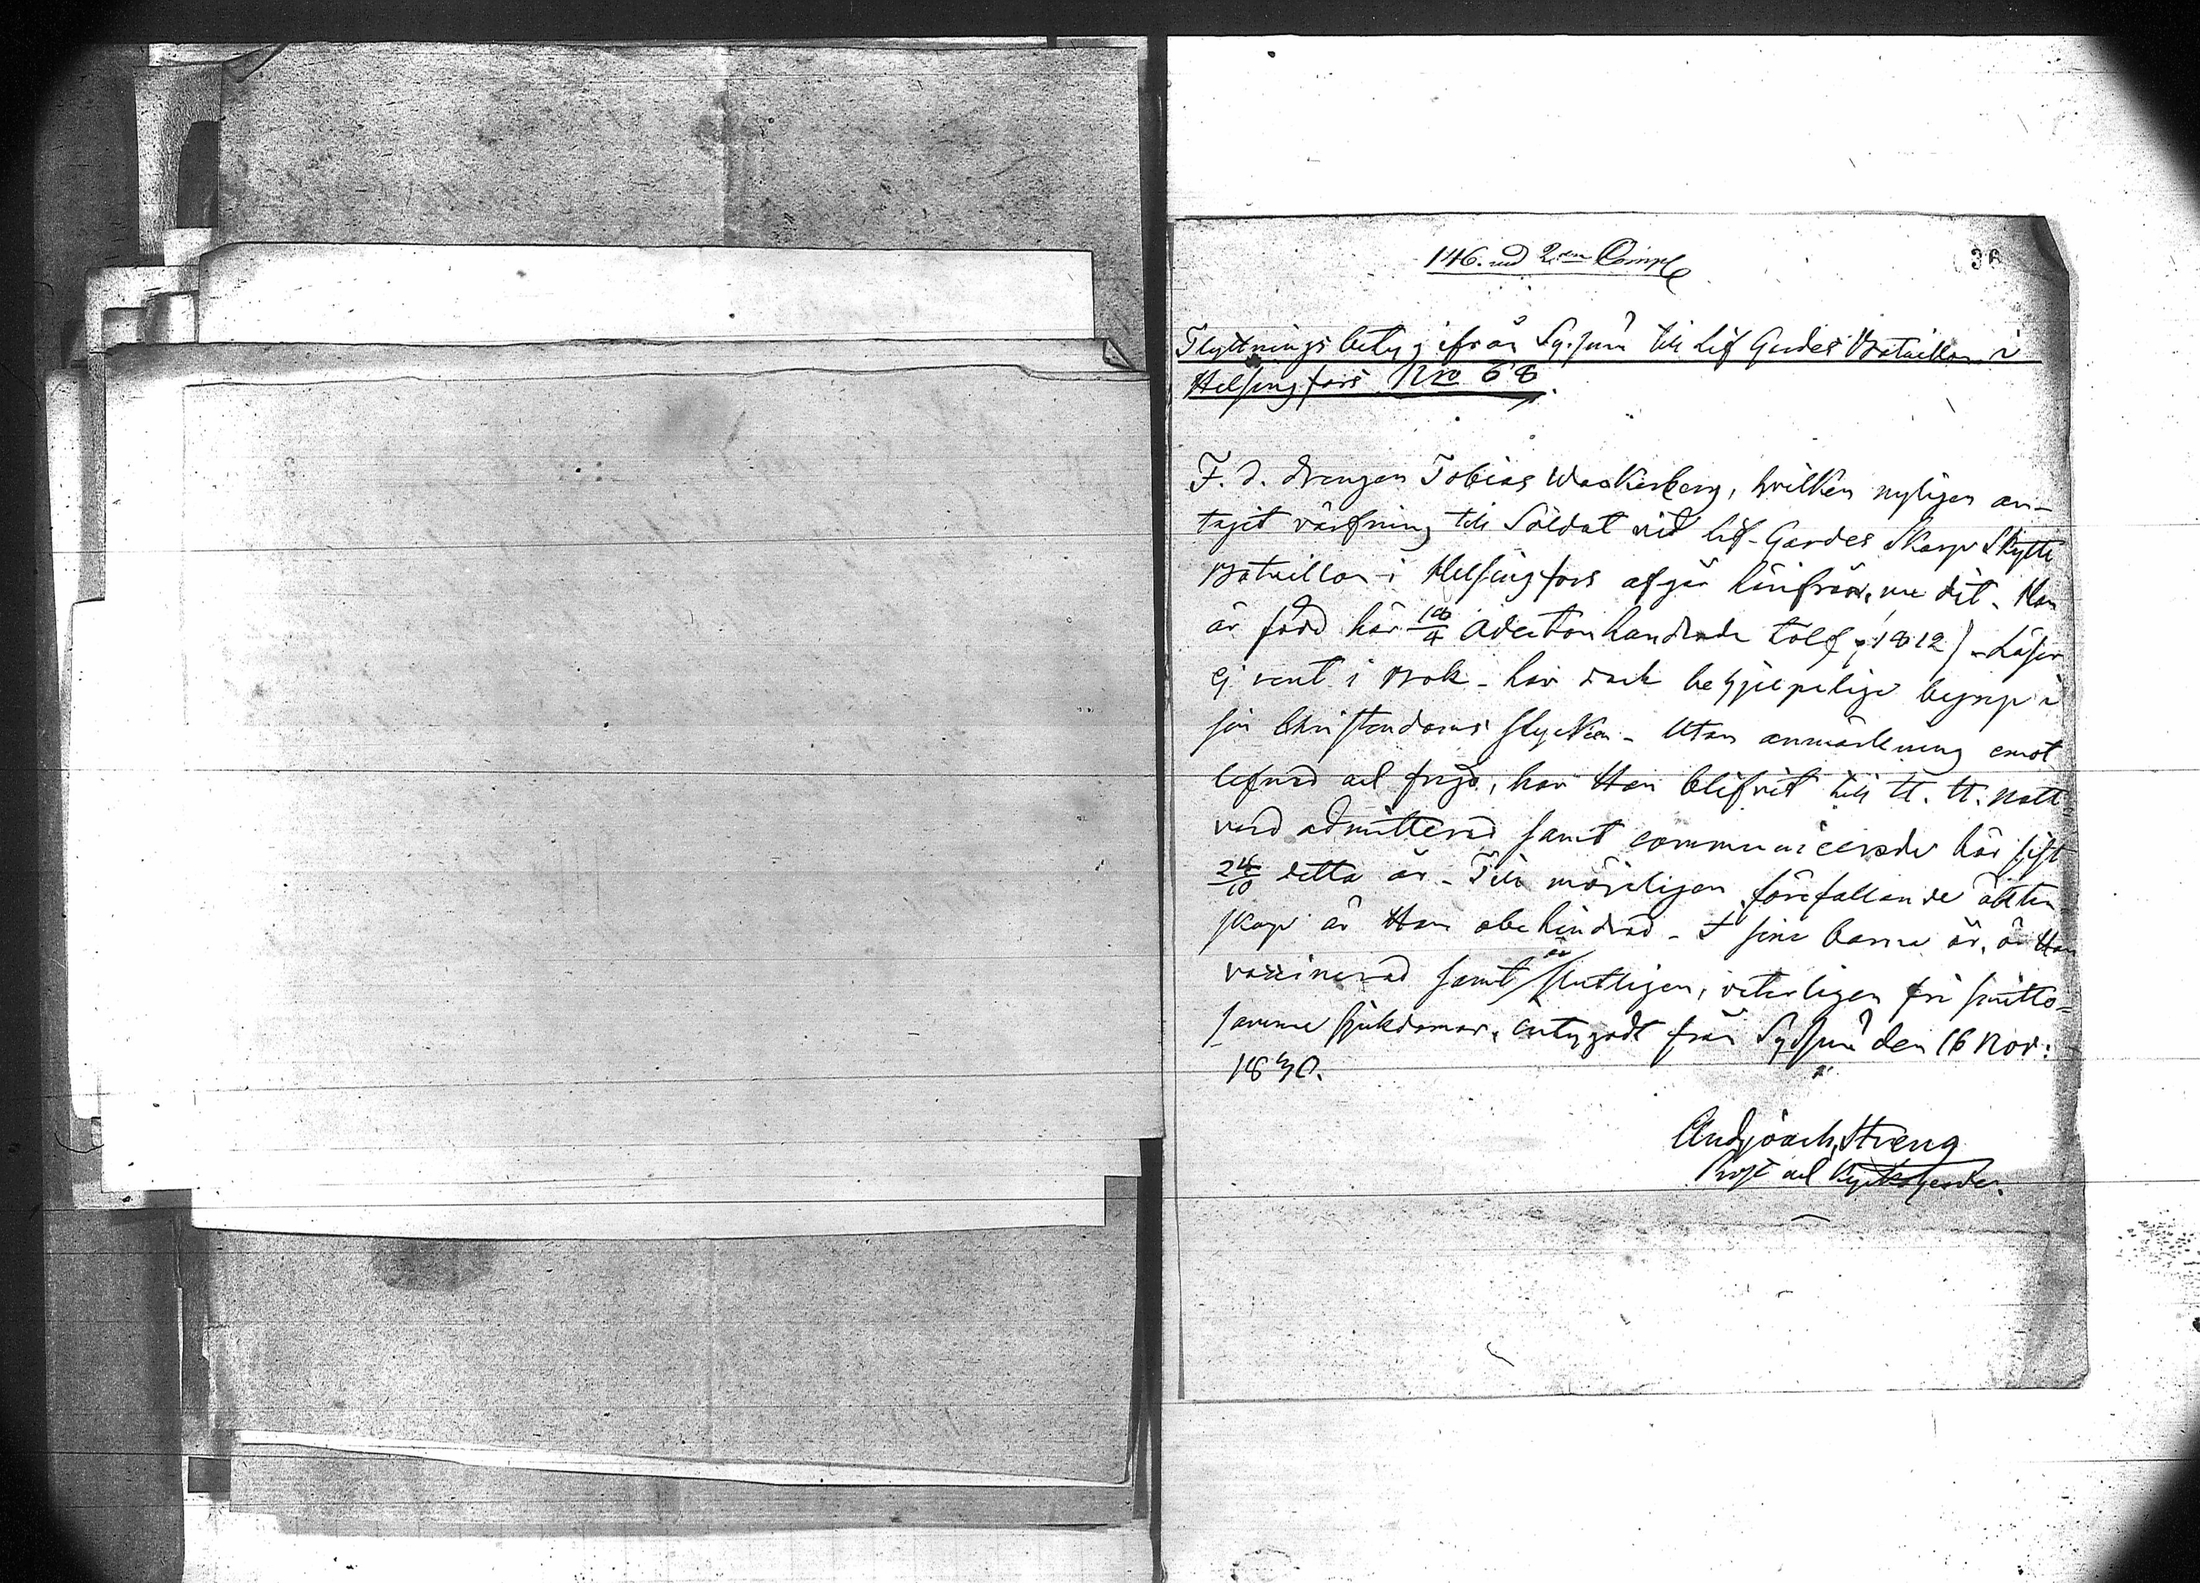 146. vid 2:dra Comp
36
Flyttnings betyg ifrån Sysmä till Lif Gardes Bataillon i
Helsingfors Nro 68.
F. d. drengen Tobias Wackerberg, hvilken nyligen an-
tagit värfning till Soldat vid Lif-Gardes Skarp Skytte
Bataillon i Helsingfors afgår härifrån, nu dit. Han
är född här 18/4 Adertonhundrade tolf (1812) - Läser
ej rent i Bok - har dock behjelpelige begrep i
sin Christendoms stycken - Utan anmärkning emot
lefnad och frejd, har Han blifvit till H. H. Natt
vard admitterad samt communicerade här sist
24/10 detta år - Till möjeligen förefallande äkten-
skap är Han obehindrad - I sina barna år, är Han
vaccinerad samt är slutligen, veterligen fri smitto-
samma sjukdomar, betygadt från Sysmä den 16 Nov:
1830.
And. Joach. Streng
Prost och Kyrkoherde.